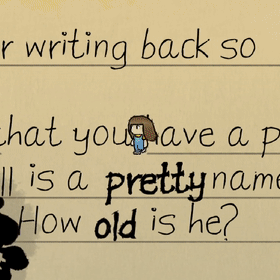 r writing back so
that you have a p
ll is a pretty name
How old is he?